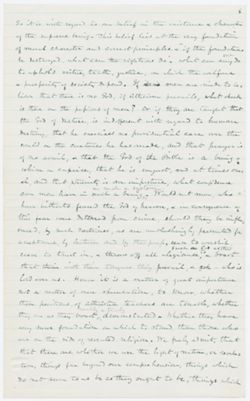 6
So it is with regard to our belief in the existence & character
of the supreme being. This belief lies at the very foundation
of moral character and correct principles & if the foundations
be destroyed, what can the righteous do; what can we do
to uphold virtue, truth, justice, on which the welfare
& prosperity of society depend. If men are made to be
lieve that there is no God, if atheism prevails, what check
is there on the passions of men? Or if they are taught that
the God of nature is indifferent with regard to human
destiny, that he exercises no providential care over the
world or the creatures he has made, and that prayer is
of no avail, & that the God of the Bible is a being
whom in caprice, that he is unjust, and at times cru
el, and that is an imposture, what confidence
can men have in such a being? Would not men who
have hitherto feared the God of heaven, & in consequence of
this fear were deterred from crime, should they be influ
enced by such doctrines, as are unblushingly presented for
acceptance by lectures and by the press, cease to worship
cease to trust in, & throw off all allegiance, & boast
that there with their tongues they prevail, & ask who is
Lord over us. Hence it is a matter of great importance
but a matter of some examination, to know whether
these positions of teachers are tenable, whether
they are as they boast, demonstrated. Whether they have
any more foundation on which to stand than those who
are on the side of revealed religion. We freely admit, that
that there are whether we use the light of nature, or revela
tion, things far beyond our comprehension, things which
do not seem to us to be as they ought to be, things which